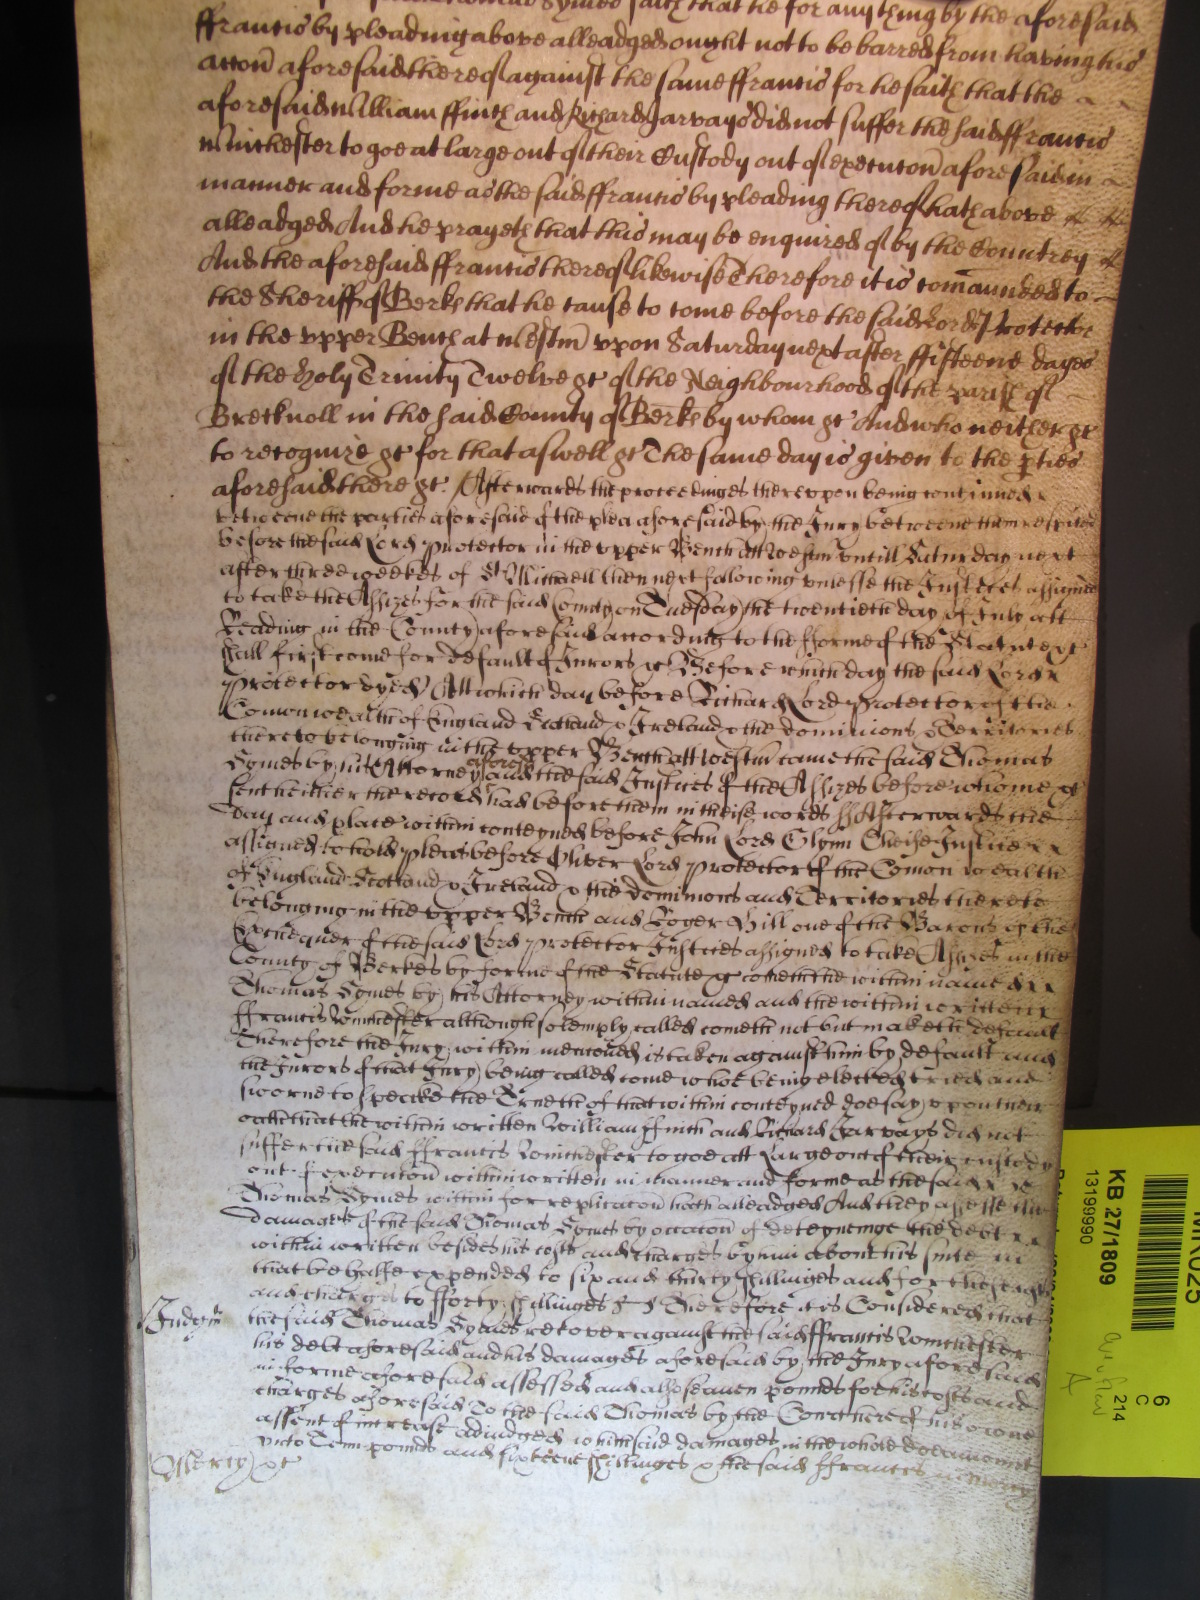 saith that he for any thing by the aforesaid
ffrancis by pleading above alleadged ought not to be barred from having his
accon̄ aforesaid thereof against the same ffrancis for he saith that the
aforesaid William ffinch and Richard Jarvays did not suffer the said ffrancis
Winchester to goe at large out of their Custody out of execucon̄ aforesaid in
manner and forme as the said ffrancis by pleading thereof hath above
alleadged And he prayeth that this may be enquired of by the Countrey
And the aforesaid ffrancis thereof likewise Therefore it is com̄aunded to
the Sheriff of Berks that he cause to come before the said Lord Protector
in the vpper Bench at Westm̄ vpon Saturday next after ffifteene dayes
of the holy Trinity Twelve &c of the Neighbourhood of the parish of
Brecknoll in the said County of Berks by whom &c And who neither &c
to recognize &c for that aswell &c The same day is given to the p̱ties
aforesaid there &c. Afterwards the proceedinges therevpon being continued
betweene the parties aforesaid of the plea aforesaid by the Jury betweene them respited
before the said Lord Protector in the vpper Bench att Westm̄ vntill Saturday next
after three weekes of St Michaell then next following vnlesse the Justices assigned
to take the Assizes for the said County on Tuesday the twentieth day of July att
Reading in the County aforesaid according to the fforme of the Statute &c
shall first come for default of Jurors &c Before which day the said Lord
Protector dyed Att which day before Richard Lord Protector of the
Com̄onwealth of England Scotland & Ireland & the dominions & Territories
thereto belonging in the vpper Bench att Westm̄ came the said Thomas
Symes by his Attorney aforesd and the said Justices of the Assizes before whome &c
sent hether the record had before them in theise words ss Afterwards the
day and place within conteyned before John Lord Glynn Cheife Justice
assigned to hold pleas before Oliver Lord Protector of the Com̄onwealth
of England Scotland & Ireland & the dominions and Territories thereto
belonging in the vpper Bench and Roger Hill one of the Barons of the
Exchequer of the said Lord Protector Justices assigned to take Assizes in the
County of Berkes by forme of the Statute &c cometh the within named
Thomas Symes by his Attorney within named and the within written
ffrancis Winchester although solemply called cometh not but maketh default
Therefore the Jury within menc̄oned is taken against him by default and
the Jurors of that Jury being called come whoe being elected tried and
sworne to speake the Trueth of that within conteyned doe say vpon their
oath that the within written William ffinch and Richard Jarvays did not
suffer the said ffrancis Winchester to goe att Large out of their custody
out of execucon̄ within written in manner and forme as the said
Thomas Symes within for replicacon̄ hath alleadged And they assesse the
damages of the said Thomas Symes by occacon̄ of deteyneinge the debt
within written besides his costs and charges by him about his suite in
that behalfe expended to six and thirty shillinges and for those costs
and charges to fforty shillinges Therefore it is Considered that
Judgm̄ the said Thomas Symes recover against the said ffrancis Winchester
his debt aforesaid and his damages aforesaid by the Jury aforesaid
in forme aforesaid assessed and alsoe seaven pounds for his costs and
charges aforesaid To the said Thomas by the Court here of his owne
assent of increase adiudged which said damages in the whole doe amount
vnto Tenn pounds and sixteene shillinges & the said ffrancis in mercy
Mercy &c
KB 27/1809
13199990
6
C
214